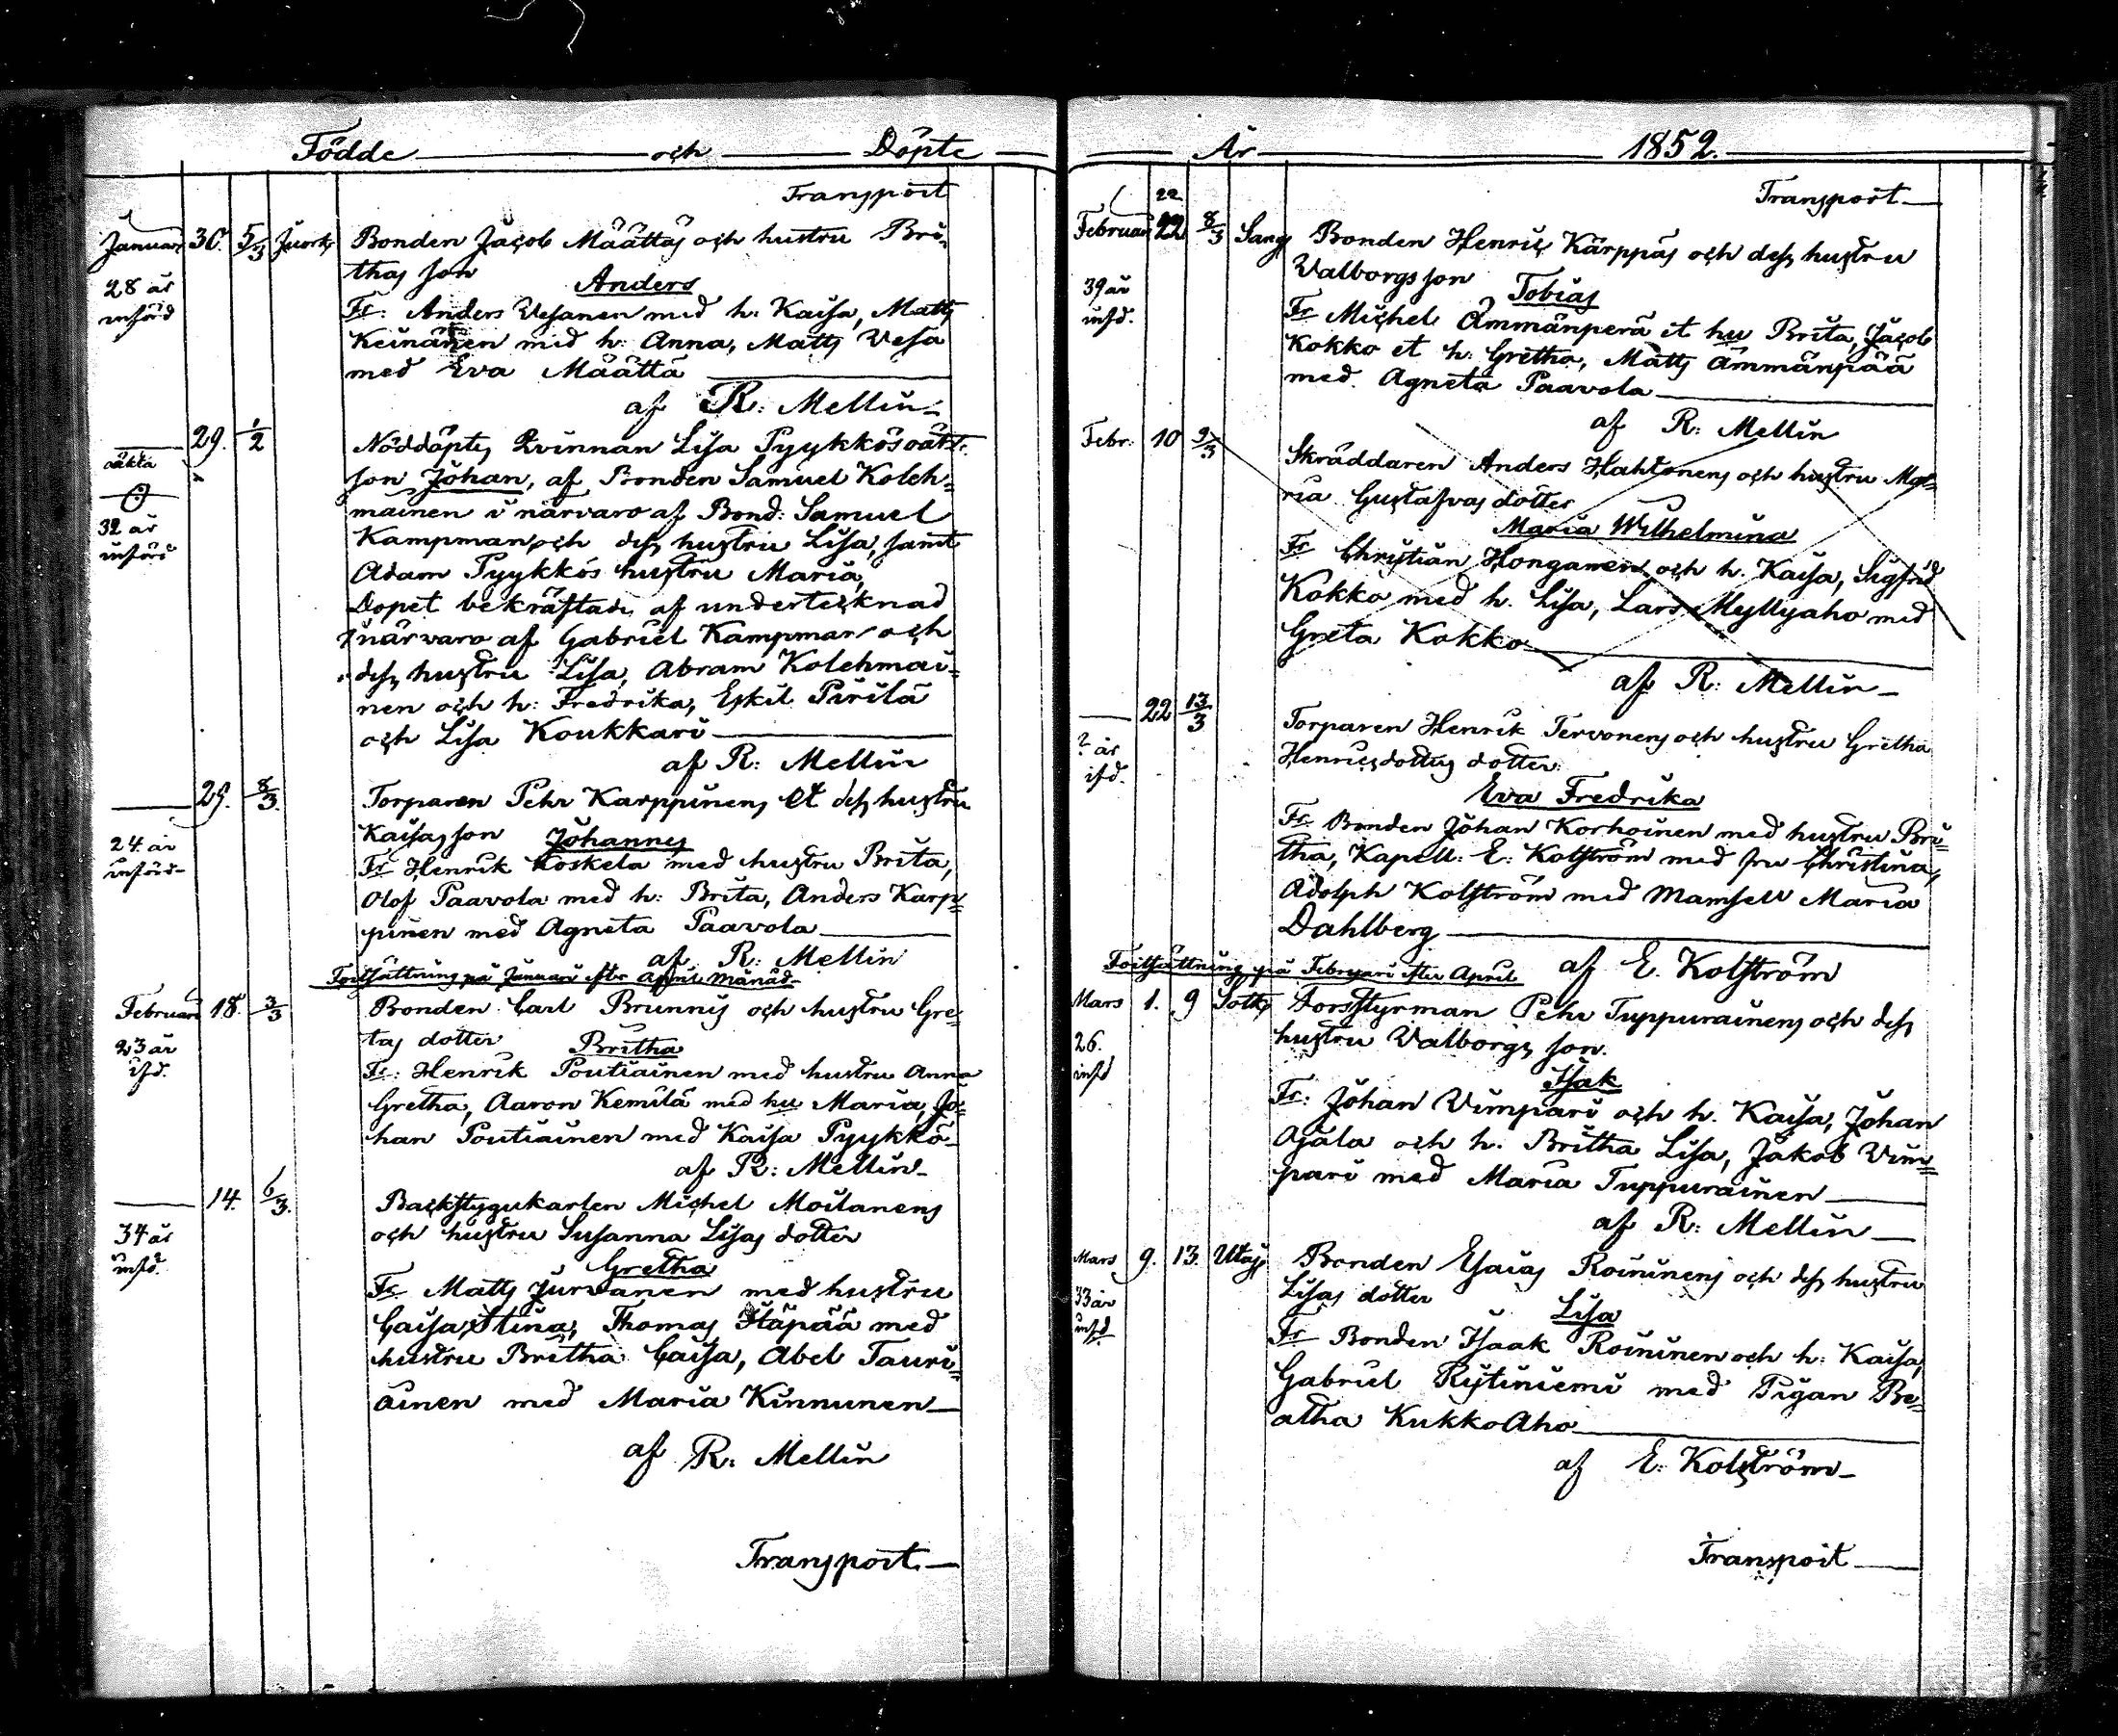 Födde och Döpte
Transport
Januari 30. 5/3 Juork Bonden Jacob Määttäs och hustru Bri-
thas son Anders
28 år
införd
Fr: Anders Vesanen med h: Kaisa, Matts
Keinänen med h: Anna, Matts Vesa
med Eva Määttä
af R: Mellin
29. 1/2 Nöddöpts Qvinnan Lisa Pyykkös oäkt.
oäkta
son Johan, af Bonden Samuel Koleh=
mainen i närvaro af Bond: Samuel
32 år
införd
Kampman och dess hustru Lisa, samt
Adam Pyykkös hustru Maria,
Dopet bekräftads af undertecknad
i närvaro af Gabriel Kampman och
dess hustru Lisa, Abram Kolehmai=
nen och h: Fredrika, Eskil Pirilä
och Lisa Koukkari
af R: Mellin
29. 8/3. Torparen Pehr Karppinens et dess hustru
Kaisas son Johannes
24 år
införd
Fr Henrik Koskela med hustru Brita,
Olof Paavola med h: Brita, Anders Karp=
pinen med Agneta Paavola
af R: Mellin
Fortsättning på Januari efter April Månad
Februari 18. 3/3 Bonden Carl Brunnis och hustru Gre-
tas dotter Britha
23 år
ifd.
Fr: Henrik Poutiainen med hustru Anna
Gretha, Aaron Kemilä med hu Maria, Jo=
han Poutiainen med Kaisa Pyykkö
af R: Mellin
14. 6/3. Backstugukarlen Michel Moilanens
och hustru Susanna Lisas dotter
34 år
infd.
Gretha
Fr Matts Jurvanen med hustru
Caisa Stina, Thomas Häpää med
hustru Britha Caisa, Abel Tauri=
ainen med Maria Kinnunen
af R: Mellin
Transport
År 1852.
Transport
22
Februari 22 8/3 Sang Bonden Henric Kärppäs och dess hustru
Valborgs son Tobias
39 år
infd.
Fr Michel Ämmänperä et hu Brita, Jacob
Kokko et h: Gretha, Matts Ämmänpää
med Agneta Paavola
af R: Mellin
Febr. 10 9/3 Skräddaren Anders Hahtonens och hustru Ma=
ria Gustafvas dotter
Maria Wilhelmina
Fr Christian Honganen och h. Kaisa, Sigfrid
Kokko med h. Lisa, Lars Myllyaho med
Greta Kokko
af R: Mellin
22 13/3 Torparen Henrik Tervonens och hustru Gretha
Henricsdotters dotter
? år
ifd.
Eva Fredrika
Fr. Bonden Johan Korhoinen med hustru Bri=
tha, Kapell: E: Kolström med fru Christina,
Adolph Kolström med Mamsell Maria
Dahlberg
af E. Kolström
Fortsättning på Februari efter April
Mars 1. 9 Sotk Forsstyrman Pehr Tuppurainens och dess
hustru Valborgs son.
26.
infd
Isak
Fr: Johan Vimpari och h. Kaisa, Johan
Ajala och h. Britha Lisa, Jakob Vim=
pari med Maria Tuppurainen
af R: Mellin
Mars 9. 13. Utaj Bonden Esaias Roininens och dess hustru
Lisas dotter Lisa
33 år
infd.
Fr Bonden Isaak Roininen och h: Kaisa,
Gabriel Rytiniemi med Pigan Be=
atha KukkoAho
af E: Kolström
Transport